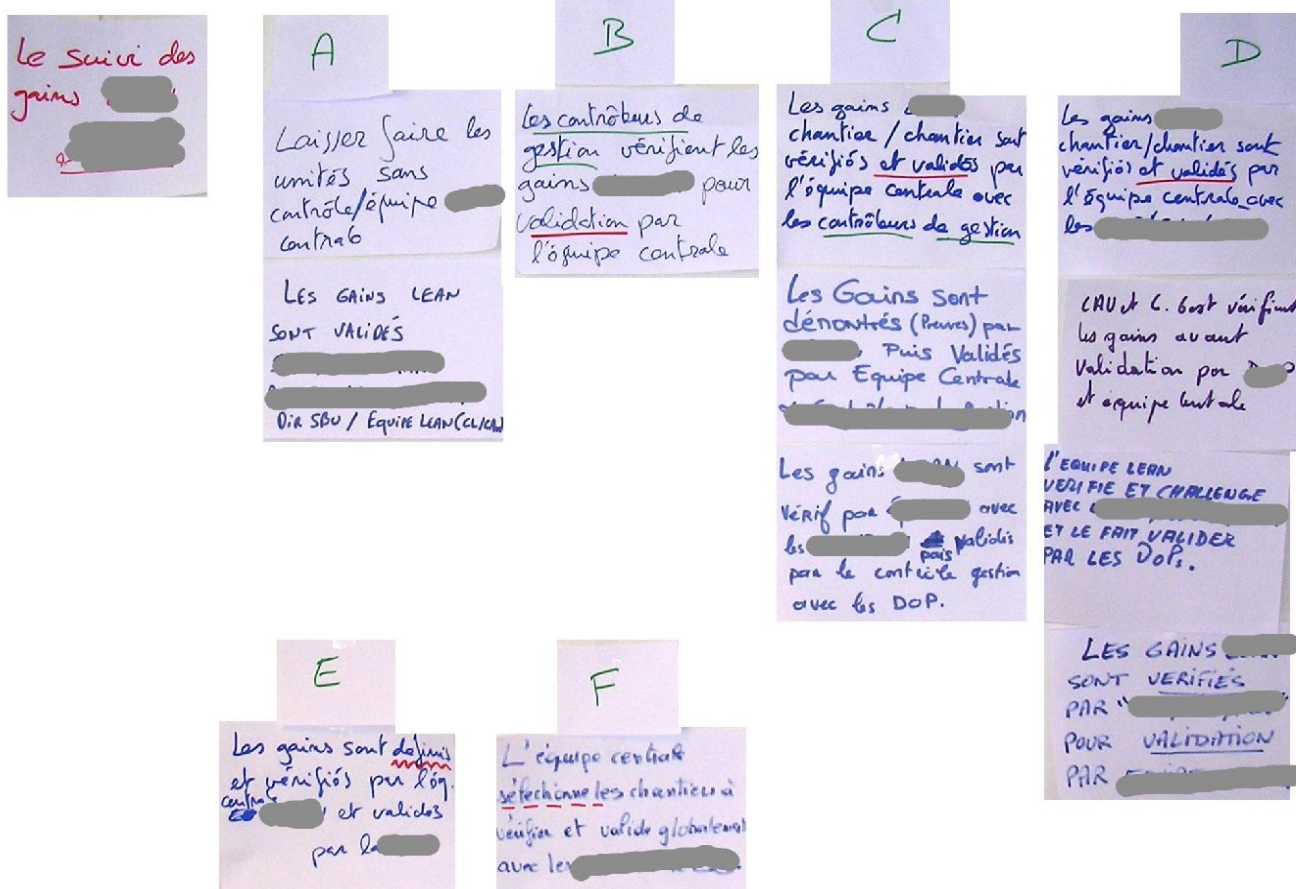 Le suivi des
gains
A
Laisser faire les
unités sans
contrôle/équipe
centrale
LES GAINS LEAN
SONT VALIDÉS
DIR SBU / EQUIPE LEAN (CL/CAU)
B
Les contrôleurs de
gestion vérifient les
gains pour
validation par
l'équipe centrale
C
Les gains
chantier/chantier sont
vérifiés et validés par
l'équipe centrale avec
les contrôleurs de gestion
Les Gains sont
démontrés (Preuves) par
Puis Validés
par Equipe Centrale
Les gains sont
VÉRIF par avec
les puis validés
par le contrôle gestion
avec les DOP.
D
Les gains
chantier/chantier sont
vérifiés et validés par
l'équipe centrale avec
les
CAU et C. Gest vérifient
les gains avant
validation par
et équipe centrale
L'EQUIPE LEAN
VERIFIE ET CHALLENGE
AVEC
ET LE FAIT VALIDER
PAR LES DOPs.
LES GAINS
SONT VERIFIÉS
PAR "
POUR VALIDATION
PAR
E
Les gains sont définis
et vérifiés par l'éq.
centrale
et validés
par la
F
L'équipe centrale
sélectionne les chantiers à
vérifier et valide globalement
avec les